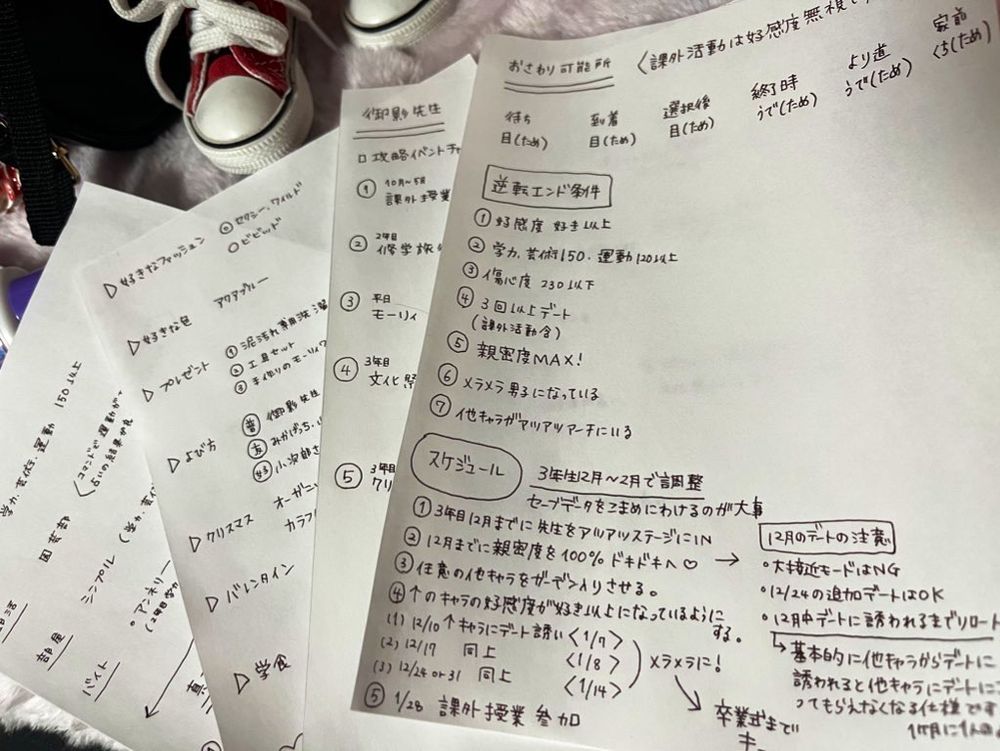 学力、芸術、運動 150以上
園芸部
シンプル
部屋
バイト
・アンネリー
▷好きなファッション ◎セクシー、ワイルド
○ビビッド
▷好きな色 アクアブルー
▷プレゼント ①泥汚れ専用洗
②工具セット
③手作りのモーリィ
▷よび方 普 御影先生
友 みかげっち、
好 小次郎さ
▷クリスマス オーガニッ
カラフ
▷バレンタイン
▷学食
御影先生
□攻略イベントチ
① 10月〜5月
課外授業
② 2年目
修学旅
③ 平日
モーリィ
④ 3年目
文化祭
⑤ 3年目
クリ
おさわり可能所 〈課外活動は好感度無視
待ち 目(ため)
到着 目(ため)
選択後 目(ため)
終了時 うで(ため)
より道 うで(ため)
家前 くち(ため)
逆転エンド条件
①好感度 好き以上
②学力、芸術150・運動120以上
③傷心度 230以下
④3回以上デート
(課外活動含)
⑤親密度MAX!
⑥メラメラ男子になっている
⑦他キャラがアツアツアーチにいる
スケジュール 3年生12月〜2月で調整
セーブデータをこまめにわけるのが大事
①3年目12月までに先生をアツアツステージにIN
②12月までに親密度を100% ドキドキへ♡ →
③任意の他キャラをガーデン入りさせる。
④↑のキャラの好感度が好き以上になっているように
する。
(1) 12/10 ↑キャラにデート誘い〈1/7〉
(2) 12/17 同上 〈1/8〉
(3) 12/24 or 31 同上 〈1/14〉
メラメラに!
⑤ 1/28 課外授業参加
卒業式まで
キー
12月のデートの注意
・大接近モードはNG
・12/24の追加デートはOK
・12月中デートに誘われるまでリロート
↳基本的に他キャラからデートに
誘われると他キャラにデートに
ってもらえなくなる仕様です
1ヶ月に1人の